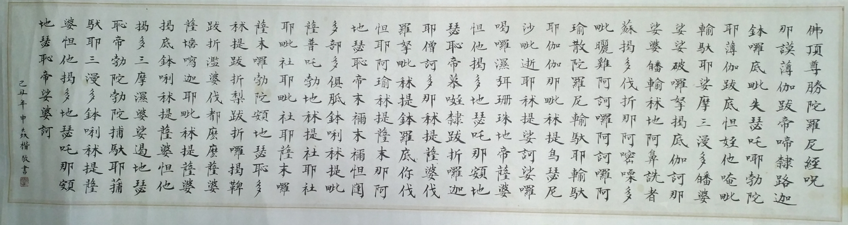 佛頂尊勝陀羅尼經咒
那謨薄伽跋帝啼隸路迦
鉢囉底毗失瑟吒耶勃陀
耶薄伽跋底怛姪他唵毗
輸馱耶娑摩三漫多皤婆
娑娑破囉拏揭底伽訶那
娑婆皤輸秫地阿鼻詵者
蘇揭多伐折那嘧嘌多
毗曬雞阿訶囉阿訶囉阿
瑜散陀羅尼輸馱耶輸馱
耶伽伽那毗秫提烏瑟尼
沙毗逝耶秫提娑訶娑囉
喝囉濕弭珊珠地帝薩婆
怛他揭多地瑟吒那頞地
瑟恥帝慕㘕隸跋折囉迦
耶僧訶多那秫提薩婆伐
羅拏毗秫提鉢羅底你伐
怛耶阿瑜秫提薩末那阿
地瑟恥帝末禰末禰怛闥
多部多俱胝鉢唎秫提毗
薩普吒勃地秫提社耶社
耶毗社耶毗社耶薩末囉
薩末囉勃陀頞地瑟恥多
秫提跋折梨跋折囉揭鞞
跋折濫婆伐都麼麼薩婆
薩埵寫迦耶毗秫提薩婆
揭底鉢唎秫提薩婆怛他
揭多三摩濕婆娑遏地瑟
恥帝勃陀勃陀蒲馱耶蒲
馱耶三漫多鉢唎秫提薩
婆怛他揭多地瑟吒那頞
地瑟恥帝娑婆訶
己丑年申焱楷敬書